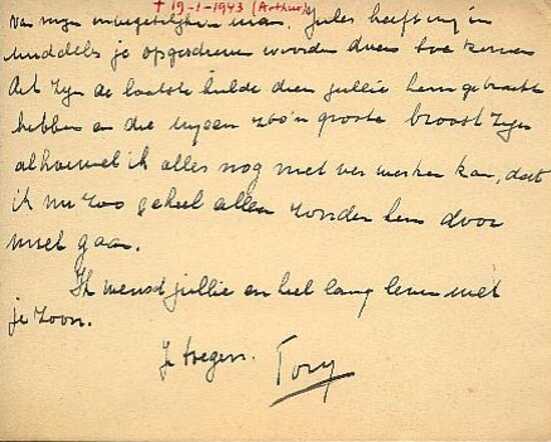 † 19-1-1943 (Arthur)
van mijn onvergetelijken man. Jules heeft mij in
middels je opgedreven woorden doen toe komen
Dit zijn de laatste hulde dien jullie hem gebracht
hebben en die mijeen zoo'n groote troost zijn
alhoewel ik alles nog niet verwerken kan, dat
ik nu zoo geheel alleen zonder hem door
moet gaan.
Ik wensch jullie en heel lang leven met
je zoon.
Je
Tory